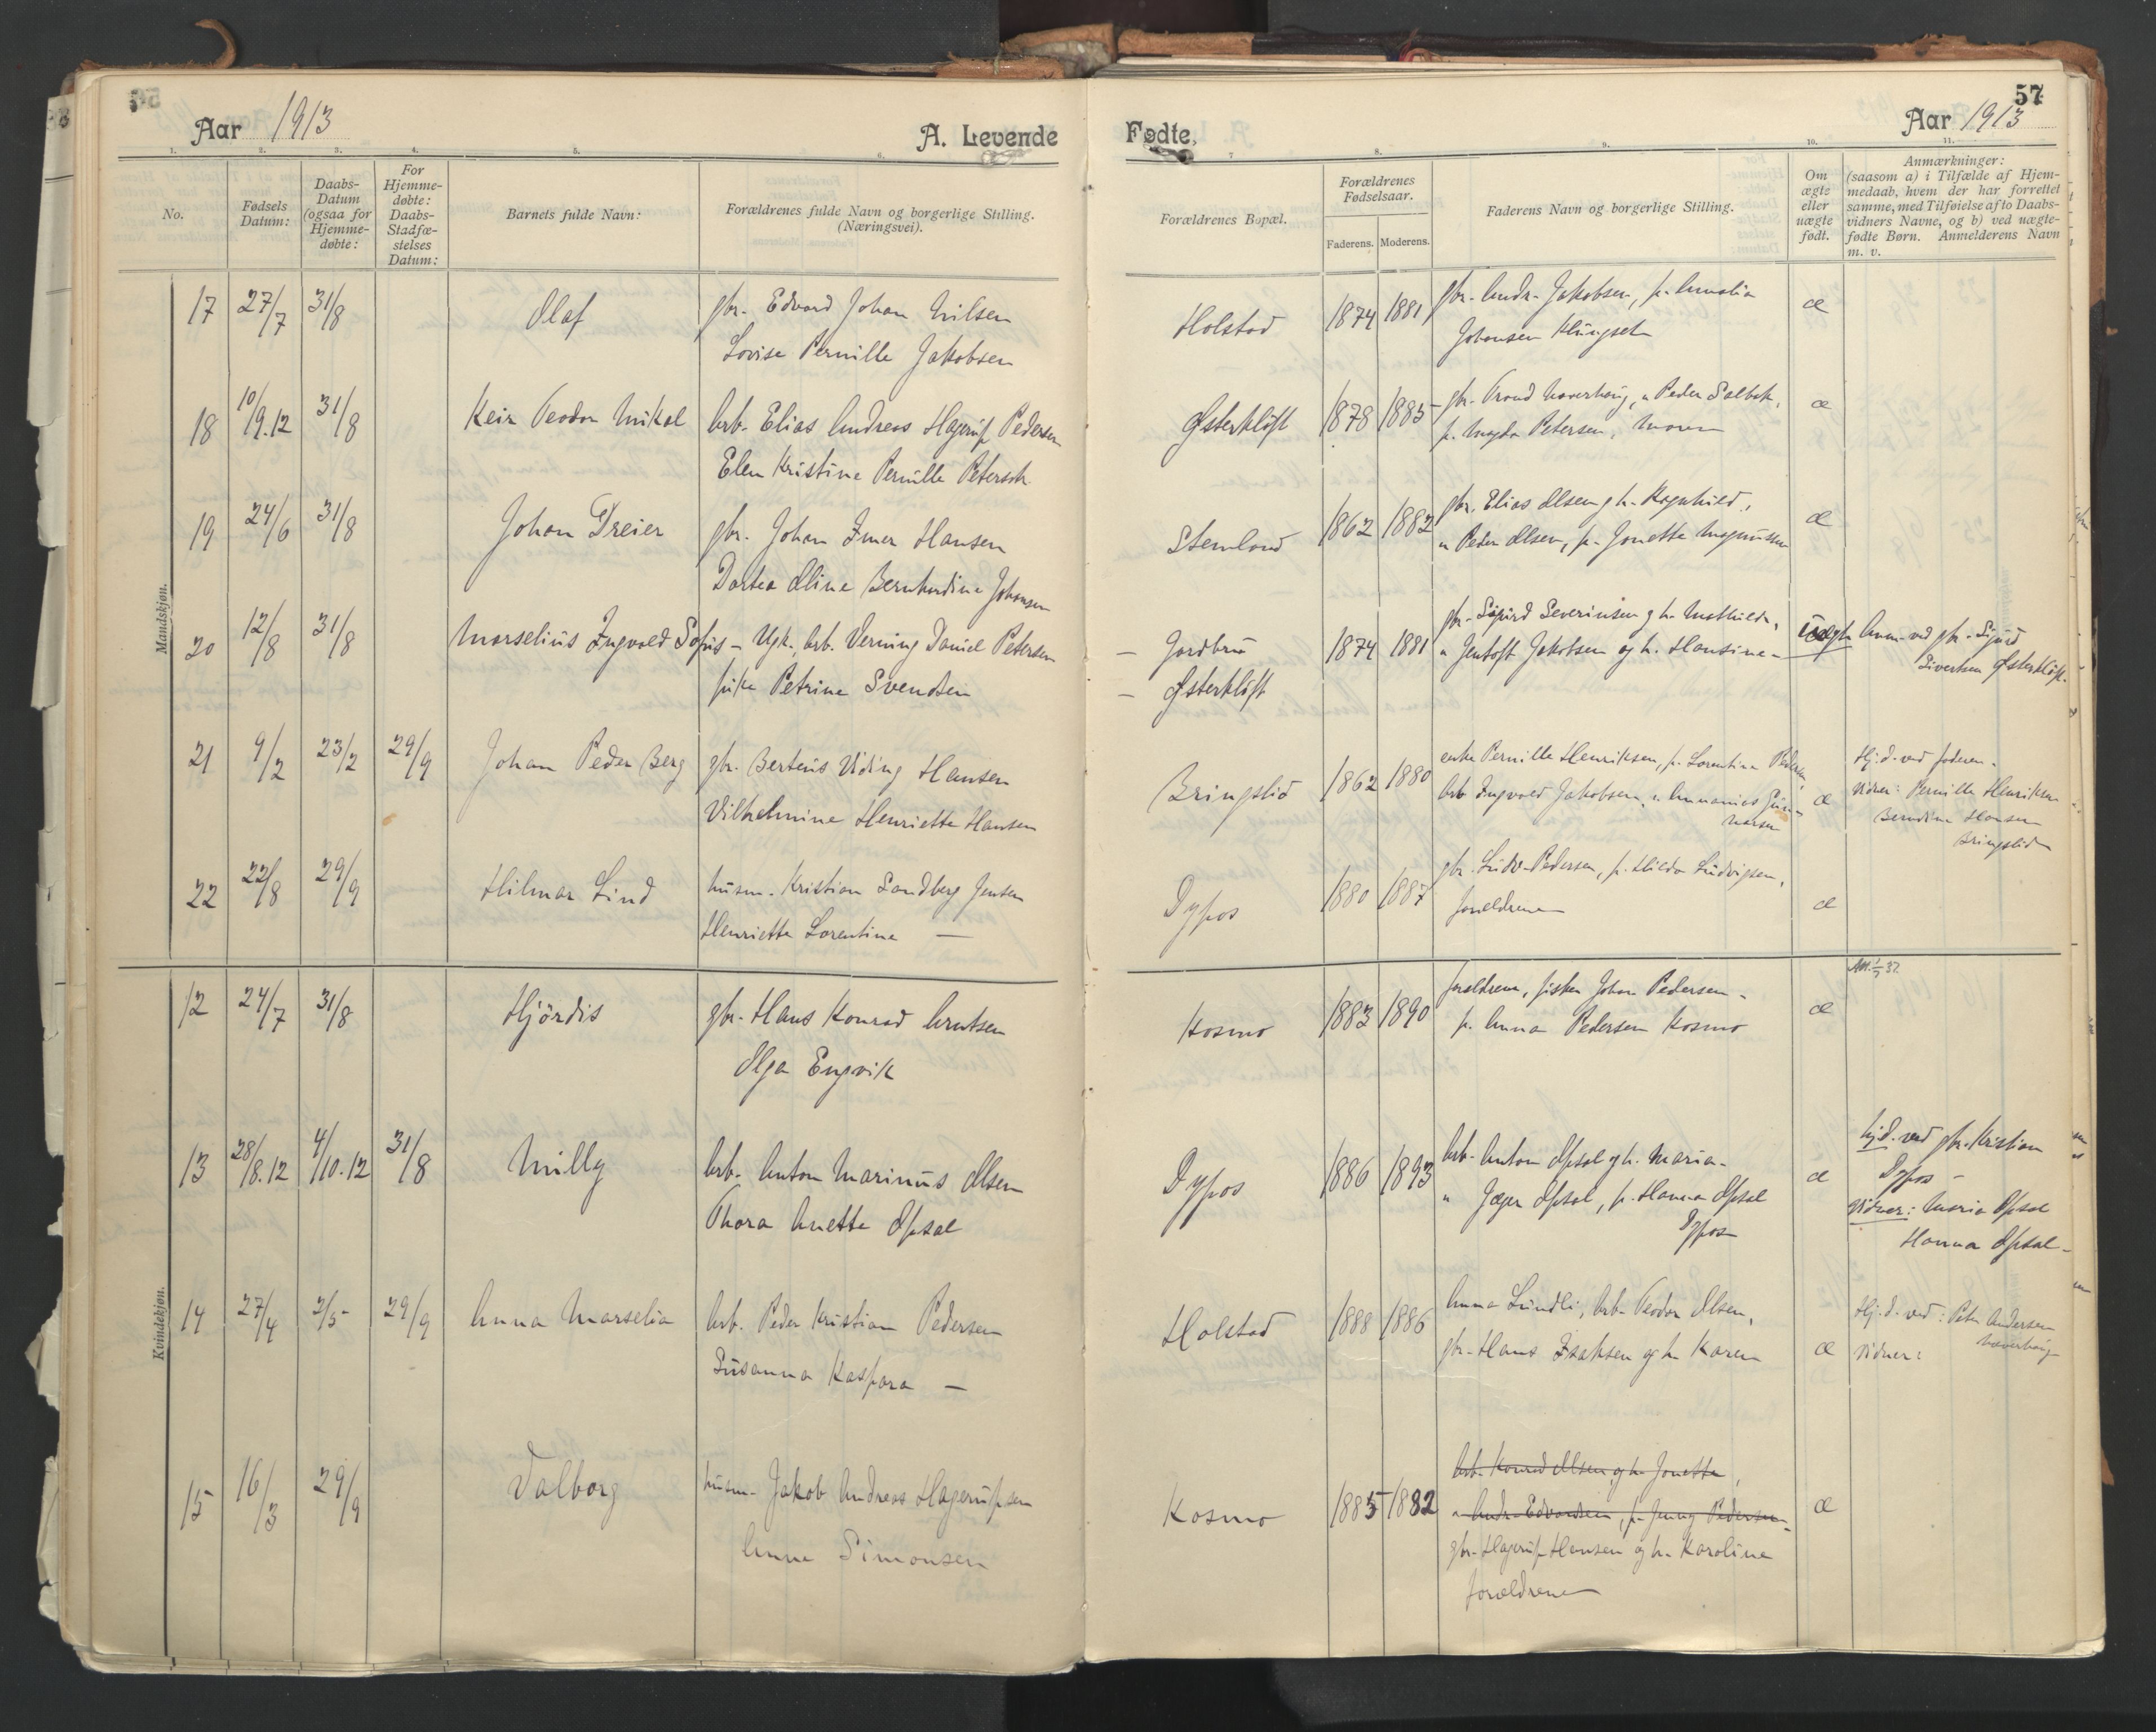 Aar 1913
A. Levende
1. 2. 3. 4. 5. 6.
No.
Fødsels
Datum:
Daabs-
Datum
(ogsaa for
Hjemme-
døbte:
For
Hjemme-
døbte:
Daabs-
Stadfæ-
stelses
Datum:
Barnets fulde Navn:
Forældrenes fulde Navn og borgerlige Stilling.
(Næringsvei).
Mandskjøn.
17 27/7 31/8 Olaf gbr. Edvard Johan Nilsen
Lovise Pernille Jakobsen
18 10/9.12 31/8 Keir Teodor Mikal arb. Elias Andreas Hagerup Pedersen
Elen Kristine Pernille Petersdt.
19 24/6 31/8 Johan Dreier gbr. Johan Imer Hansen
Dortea Oline Bernhardine Johansen
20 12/8 31/8 Marselius Ingvald Sofus – Ugk. arb. Verning Daniel Petersen
pike Petrine Svendsen
21 9/2 23/2 29/9 Johan Peder Berg gbr. Berteus Uding Hansen
Vilhelmine Henriette Hansen
22 22/8 29/9 Hilmar Lind husm. Kristian Sandberg Jensen
Henriette Lorentine —
Kvindeskjøn.
12 24/7 31/8 Hjördis gbr. Hans Konrad Arntsen
Olga Engvik
13 28/8.12 4/10.12 31/8 Milly arb. Anton Marinus Olsen
Thora Anette Opsal
14 27/4 2/5 29/9 Anna Marselia arb. Peder Kristian Pedersen
Susanna Kaspara —
15 16/3 29/9 Valborg husm. Jakob Andreas Hagerupsen
Anna Simonsen
Fødte,
57
Aar 1913
7 8. 9. 10. 11.
Forældrenes Bopæl.
Forældrenes
Fødselsaar.
Faderens. Moderens.
Faderens Navn og borgerlige Stilling.
Om
ægte
eller
uægte
født.
Anmærkninger:
(saasom a) i Tilfælde af Hjem-
medaab, hvem der har forrettet
samme, med Tilføielse af to Daabs-
vidners Navne, og b) ved uægte-
fødte Børn. Anmelderens Navn
m. v.
Holstad 1874 1881 gbr. Andr. Jakobsen, p. Amalia
Johansen Klungset
æ
Østerkløft 1878 1885 gbr. Trond Naverhaug, " Peder Salbek,
p. Magda Petersen, Moren
æ
Stemland 1862 1882 gbr. Elias Olsen g h. Ragnhild,
" Peder Olsen, p. Jonette Magnussen
æ
– Jordbru 1874 1881 gbr. Sigurd Severinsen g h. Mathilde,
" Jentoft Jakobsen og h. Hansine
– Østerkløft
uægte Anm. ved gbr. Sigurd
Sivertsen Østerkløft.
Bringslid 1862 1880 enke Pernille Henriksen, p. Lorentine Peders.
arb Ingvald Jakobsen, " Ananias Gun-
narsen
æ
Hj. d. ved faderen.
Vidner: Pernille Henriksen
Berndine Hansen
Bringslid
Dypos 1880 1887 gbr. Ludv. Pedersen, p. Hilda Ludvigsen,
forældrene
æ
Kosmo 1883 1890 forældrene, fisker Johan Pedersen
p. Anna Pedersen Kosmo
æ
Att. 1/7 37.
Dypos 1886 1893 arb. Anton Opsal g h. Maria
" Jæger Opsal, p. Hanna Opsal
Dypos
æ
hj.d. ved gbr. Kristian
Dypos –
Vidner: Maria Opsal
Hanna Opsal
Holstad 1888 1886 Anna Lundli, arb. Teodor Olsen,
gbr. Hans Isaksen og h. Karen
æ
Hj. d. ved: Peter Andersen
Naverhaug
Vidner:
Kosmo 1885 1882 arb. Konrad Olsen og h. Jonette,
" Andr. Edvardsen, p. Jenny Pedersen
gbr. Hagerup Hansen og h. Karoline
forældrene
æ